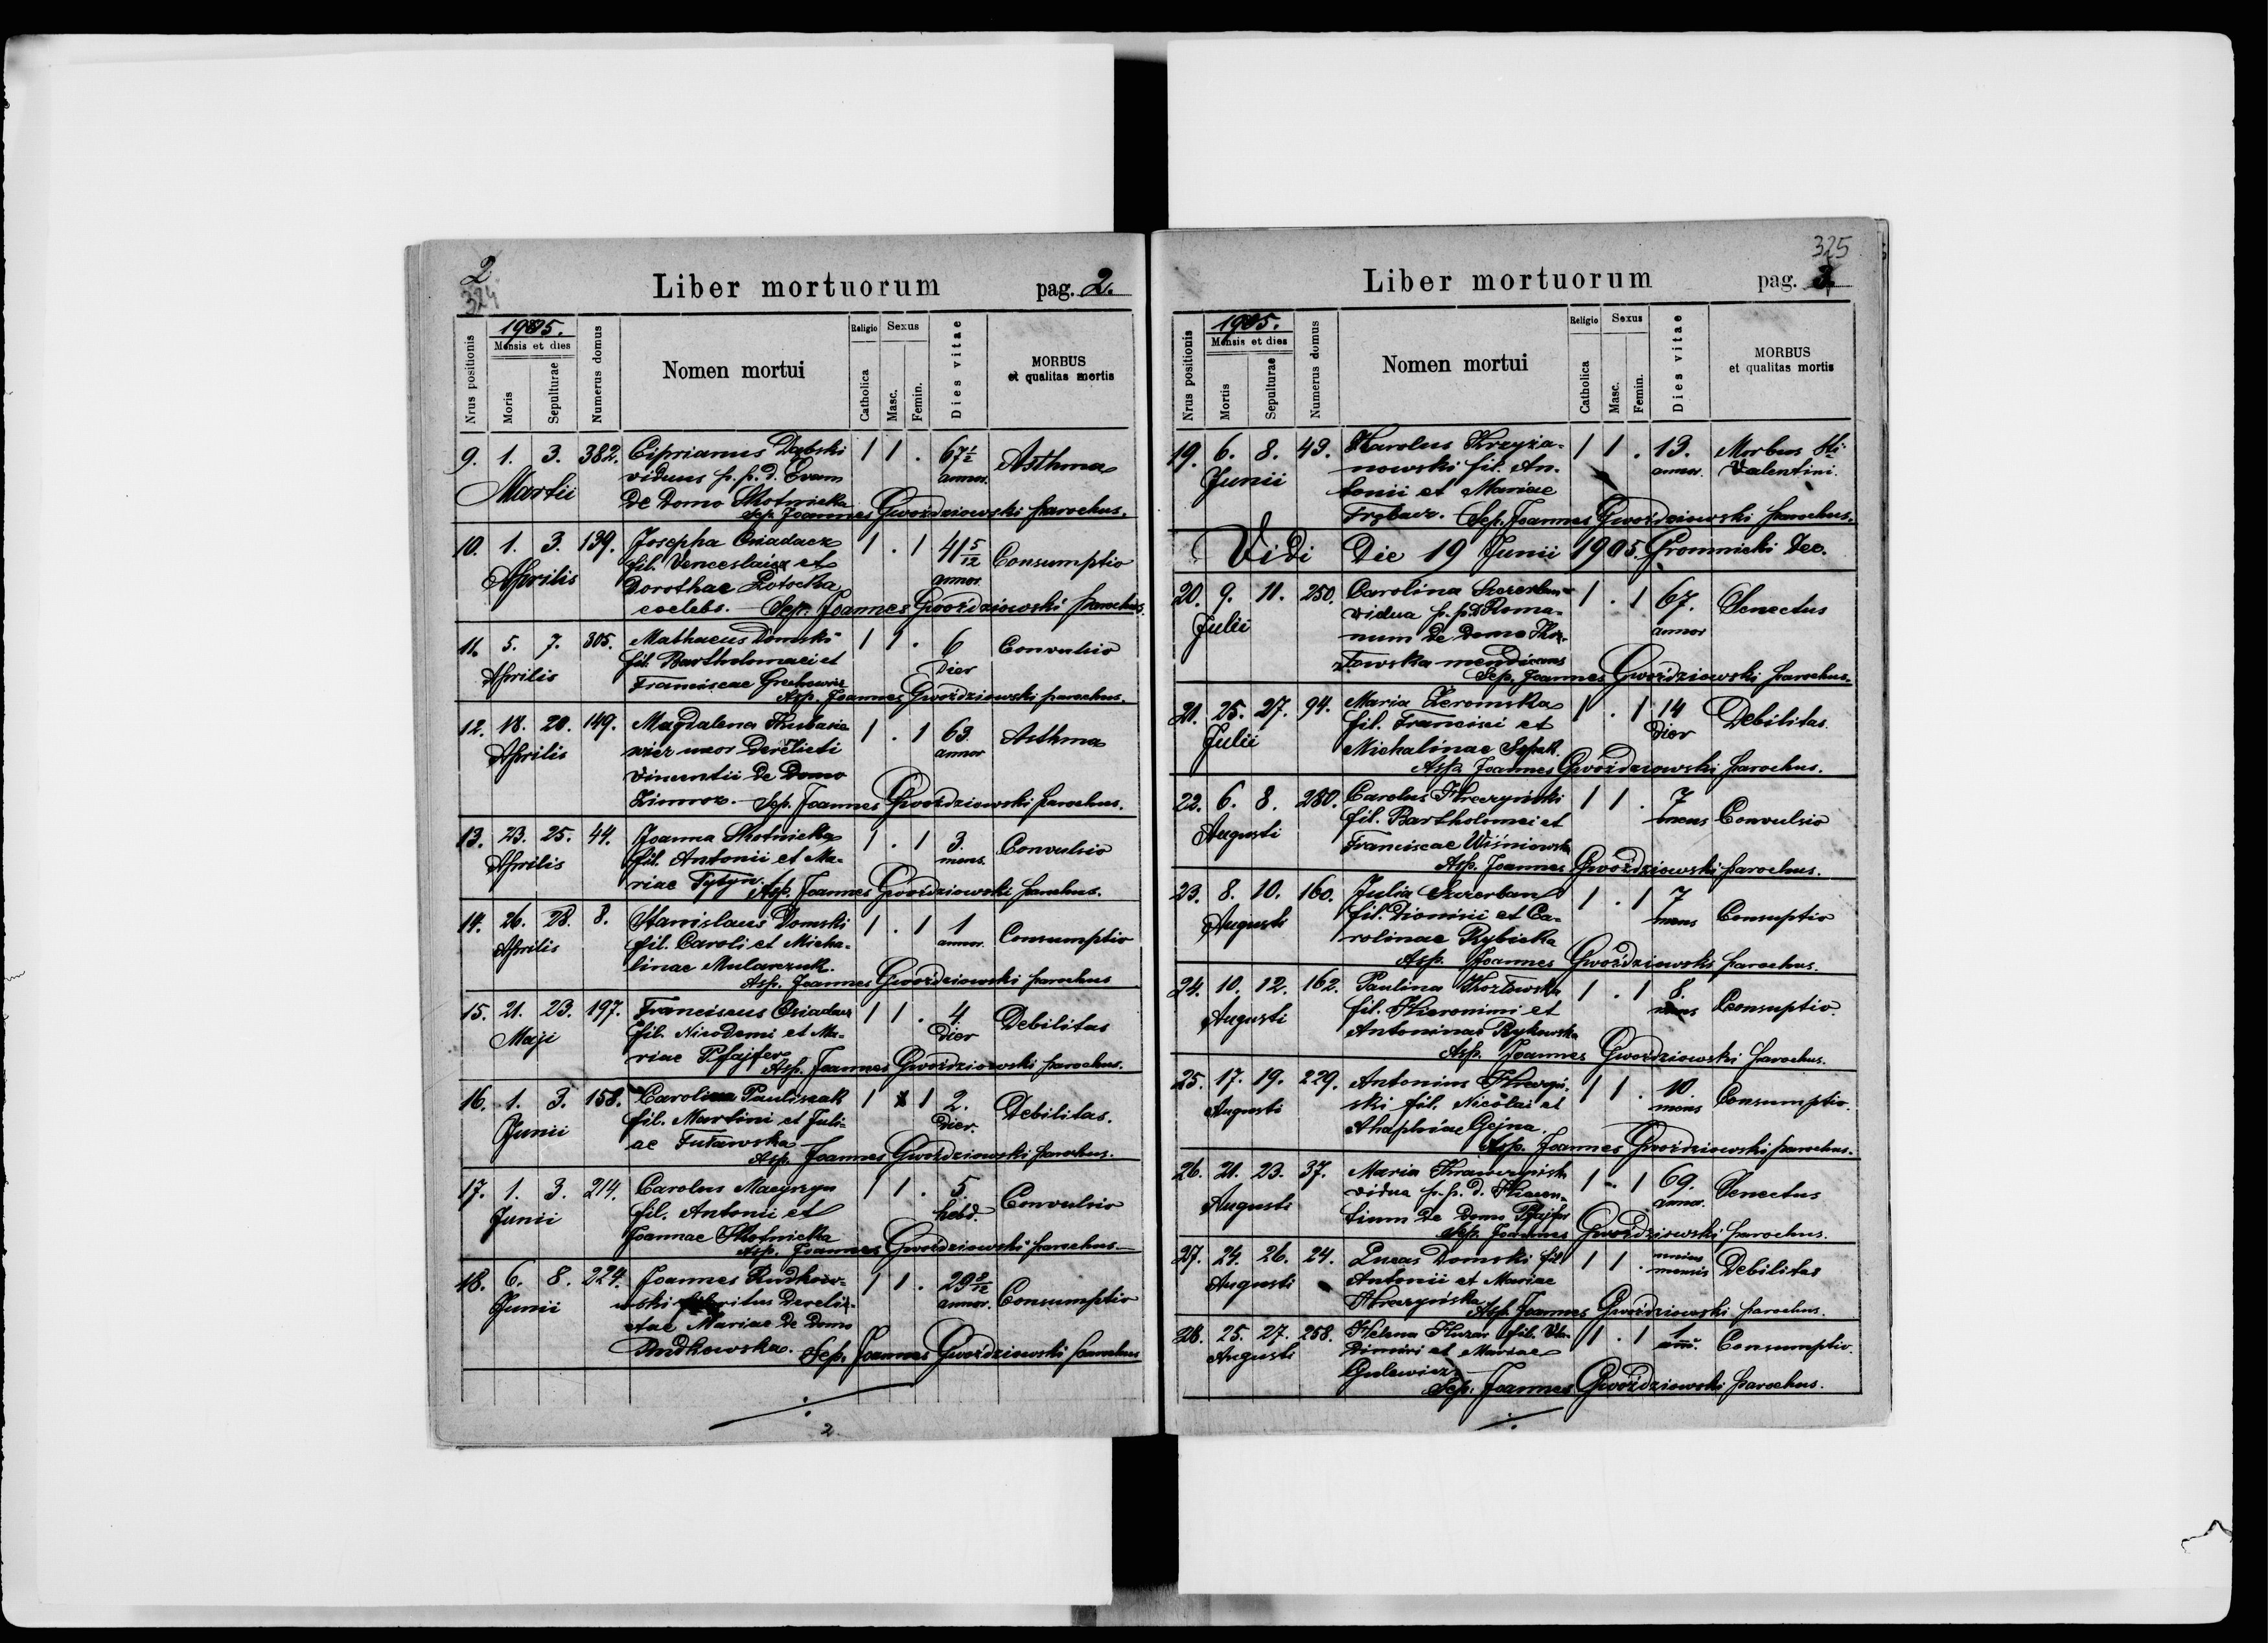 2
324
Liber mortuorum pag. 2.
Nrus positionis
1905.
Mensis et dies
Moris
Sepulturae
Numerus domus
Nomen mortui
Religio
Catholica
Sexus
Masc.
Femin.
Dies vitae
MORBUS
et qualitas mortis
9. 1. 3. 382. Ciprianus Dąbski 1 1 . 67½ Asthma
viduus p. p. d. Evam annor.
Martii de domo Skotnicka
Sep. Joannes Gwoździowski parochus.
10. 1. 3. 139. Josepha Osiadacz 1 . 1 41 5/12 Consumptio
fil. Venceslai et annor.
Aprilis Dorotheae Potocka
coelebs. Sep. Joannes Gwoździowski parochus.
11. 5. 7. 305. Mathaeus Domski 1 1 . 6 Convulsio
Aprilis fil. Bartholomaei et dier
Franciscae Grechowicz
Asp. Joannes Gwoździowski parochus.
12. 18. 20. 149. Magdalena Kubasie- 1 . 1 63. Asthma
Aprilis wicz uxor derelicti annor
Vincentii de domo
Zimroz. Sep. Joannes Gwoździowski parochus.
13. 23. 25. 44. Joanna Skotnicka 1 . 1 3. Convulsio
Aprilis fil. Antonii et Ma- mens.
riae Tytyn. Asp. Joannes Gwoździowski parochus.
14. 26. 28. 8. Stanislaus Domski 1 . 1 1 Consumptio
Aprilis fil. Caroli et Micha- annor.
linae Mularczuk.
Asp. Joannes Gwoździowski parochus
15. 21. 23. 197. Franciscus Osiadacz 1 1 . 4 Debilitas
Maji fil. Nicodemi et Ma- dier
riae Pfajfer
Asp. Joannes Gwoździowski parochus.
16. 1. 3. 158. Carolina Pauliszak 1 1 2. Debilitas.
Junii fil. Martini et Juli- dier.
ae Tutawska
Asp. Joannes Gwoździowski parochus.
17. 1. 3. 214. Carolus Macyszyn 1 1 . 5. Convulsio
Junii fil. Antonii et hebd.
Joannae Skotnicka
Asp. Joannes Gwoździowski parochus.
18. 6. 8. 224. Joannes Rudkow- 1 1 . 29 8/12 Consumptio
Junii wski maritus derelic- annor.
tae Mariae de domo
Rudkowska. Sep. Joannes Gwoździowski parochus
2
325
Liber mortuorum pag. 3
Nrus positionis
1905.
Mensis et dies
Mortis
Sepulturae
Numerus domus
Nomen mortui
Religio
Catholica
Sexus
Masc.
Femin.
Dies vitae
MORBUS
et qualitas mortis
19. 6. 8. 43. Karolus Krzyża- 1 1 . 13. Morbus Sti
Junii nowski fil. An- annor. Valentini.
tonii et Mariae
Trębacz. Sep. Joannes Gwoździowski parochus.
Vidi Die 19 Junii 1905. Gromnicki Dec.
20. 9. 11. 250. Carolina Szczerban 1 . 1 67. Senectus
Julii vidua p. p. d. Roma- annor
num de domo Koz-
łowska mendicans
Sep. Joannes Gwoździowski parochus.
21. 25. 27. 94. Maria Żeromska 1 . 1 14 Debilitas.
Julii fil. Francisci et dier
Michalinae
Asp. Joannes Gwoździowski parochus.
22. 6. 8. 280. Carolus Kreczyński 1 1 . 7 Convulsio
Augusti fil. Bartholomei et mens
Franciscae Wiśniowska
Asp. Joannes Gwoździowski parochus.
23. 8. 10. 160. Julia Szczerban 1 . 1 7 Consuptio
Augusti fil. Dionisii et Ca- mens
rolinae Rybicka
Asp. Joannes Gwoździowski parochus.
24. 10. 12. 162. Paulina Kozłowska 1 . 1 8. Consuptio.
Augusti fil. Hieronimi et mens
Antoninae Rykowska
Asp. Joannes Gwoździowski parochus.
25. 17. 19. 229. Antonius Kreczyń- 1 1 . 10. Consumptio.
Augusti ski fil. Nicolai et mens
Ahaphiae Gejna.
Asp. Joannes Gwoździowski parochus.
26. 21. 23. 37. Maria 1 . 1 69. Senectus
Augusti vidua p. p. d. annor.
tium de domo Pfajfer
Sep. Joannes Gwoździowski parochus.
27. 24. 26. 24. Lucas Domski fil 1 1 . unius Debilitas
Augusti Antonii et Mariae mensis
Kreczyńska Asp. Joannes Gwoździowski parochus.
28. 25. 27. 258. Helena Huzar fil. Vla- 1 . 1 1 Consumptio.
Augusti dimiri et Mariae anni.
Gulewicz
Sep. Joannes Gwoździowski parochus.